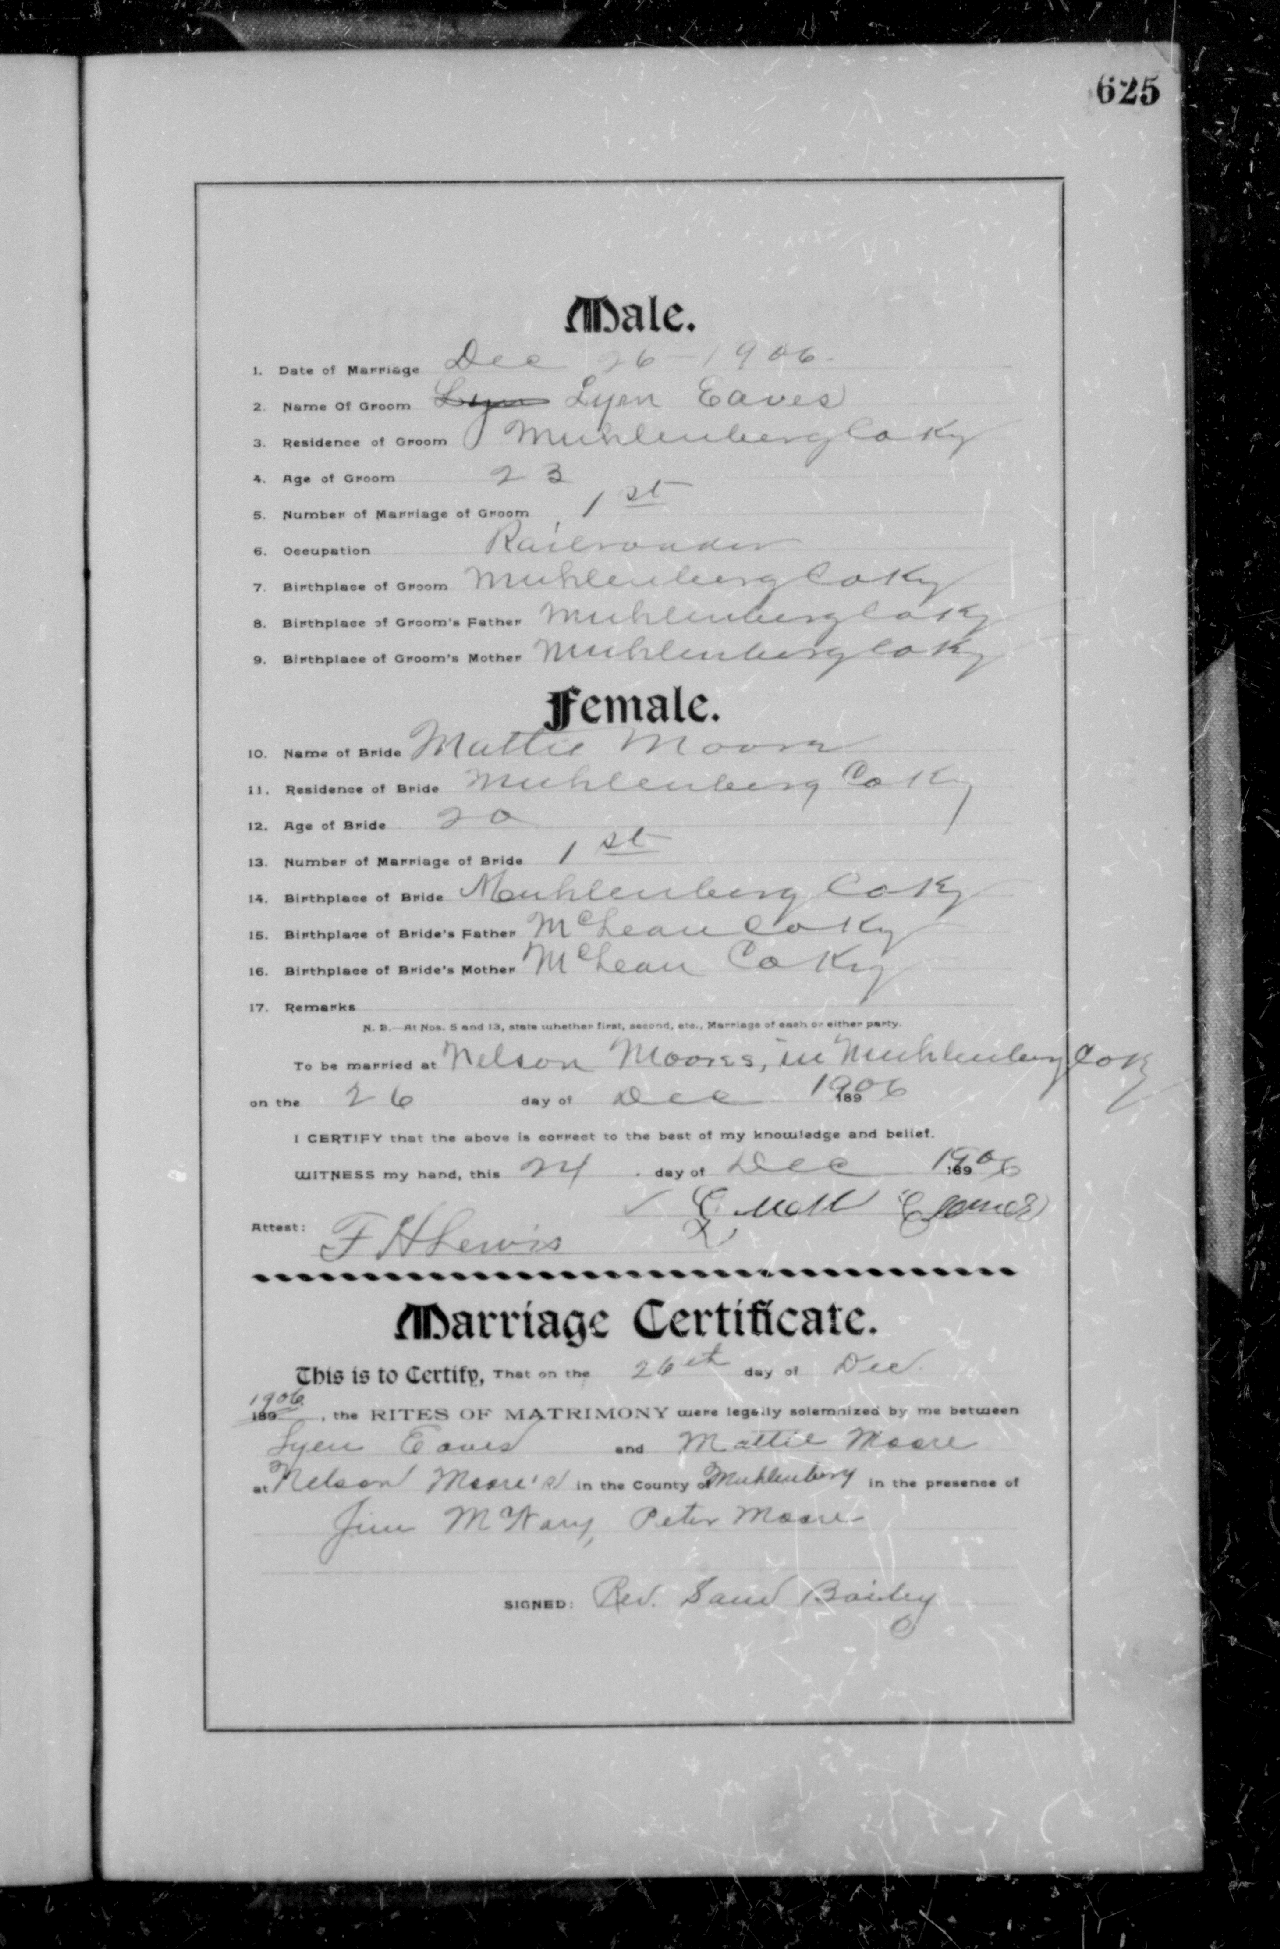 625
Male.
1. Date of Marriage Dec 26-1906-
2. Name Of Groom Lyen Lyen Eaves
3. Residence of Groom Muhlenberg Co Ky
4. Age of Groom 23
5. Number of Marriage of Groom 1st
6. Occupation Railroader
7. Birthplace of Groom Muhlenberg Co Ky
8. Birthplace of Groom's Father Muhlenberg Co Ky
9. Birthplace of Groom's Mother Muhlenberg Co Ky
Female.
10. Name of Bride Mattie Moore
11. Residence of Bride Muhlenberg Co Ky
12. Age of Bride 20
13. Number of Marriage of Bride 1st
14. Birthplace of Bride Muhlenberg Co Ky
15. Birthplace of Bride's Father McLean Co Ky
16. Birthplace of Bride's Mother McLean Co Ky
17. Remarks
N. B.—At Nos. 5 and 13, state whether first, second, etc., Marriage of each or either party.
To be married at Nelson Moores, in Muhlenberg Co Ky
on the 26 day of Dec 1906 189
I CERTIFY that the above is correct to the best of my knowledge and belief.
WITNESS my hand, this 24 day of Dec 1906 189
Attest: F H Lewis
Marriage Certificate.
This is to Certify, That on the 26th day of Dec.
1906 189 , the RITES OF MATRIMONY were legally solemnized by me between
Lyen Eaves and Mattie Moore
at Nelson Moore's in the County of Muhlenberg in the presence of
Jim McNary, Peter Moore
SIGNED: Rev. Sam Bailey